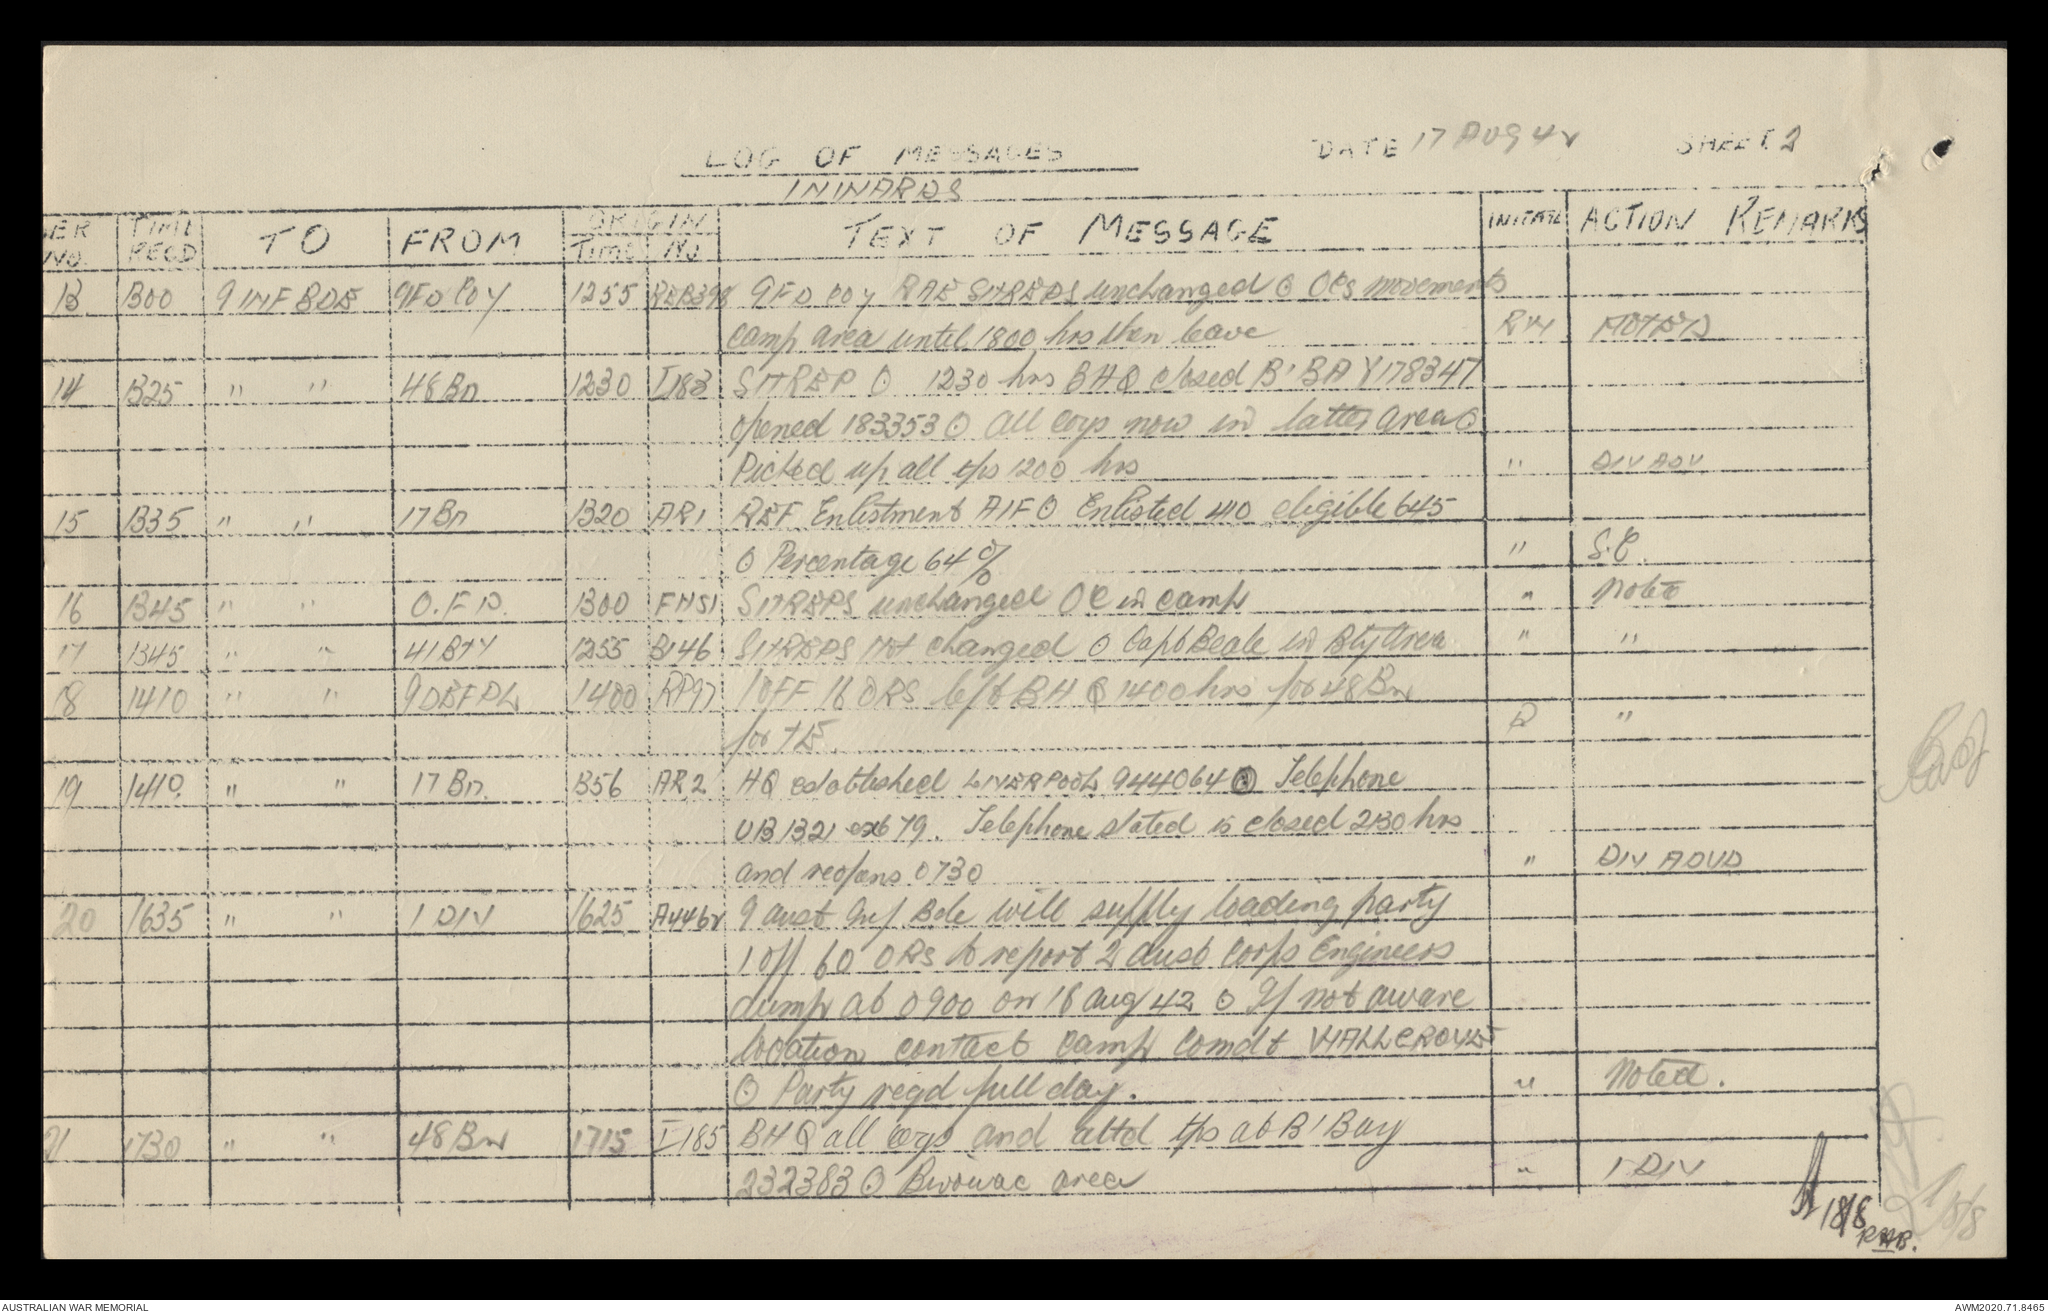 LOG OF MESSAGES DATE 17 AUG 42 SHEET 2
INWARDS
SER NO. TIME RECD TO FROM ORIGIN TIME NO TEXT OF MESSAGE INITIAL ACTION REMARKS
13 1300 9 INF BDE 9 FD Coy 1255 REB398 9 FD Coy RAE SITREPS unchanged ⊙ OCs movements
camp area until 1800 hrs then leave RW NOTED
14 1325 " " 48 Bn 1230 I183 SITREP ⊙ 1230 hrs BHQ closed B'BAY 178347
opened 183353 ⊙ All coys now in latter area ⊙
Picked up all tps 1200 hrs " DIV ADV
15 1335 " " 17 Bn 1320 AR1 REF Enlistment AIF ⊙ Enlisted 410 eligible 645
⊙ Percentage 64% " S.C.
16 1345 " " O.F.P. 1300 FH51 SITREPS unchanged OC in camp " Noted
17 1345 " " 41 BTY 1255 B146 SITREPS not changed ⊙ Capt Beale in Bty Area " "
18 1410 " " 9 DEF PL 1400 RP97 1 OFF 16 ORS left BHQ 1400 hrs for 48 Bn
for R "
19 1410. " " 17 Bn. 1356 AR2 HQ established LIVERPOOL 944064 ⊙ Telephone
UB1321 ext 79. Telephone stated is closed 2130 hrs
and reopens 0730 " DIV ADVD
20 1635 " " 1 DIV 1625 A4462 9 Aust Inf Bde will supply loading party
1 off 60 ORS to report 2 Aust Corps Engineers
dump at 0900 on 18 Aug 42 ⊙ If not aware
location contact Camp Comdt WALLGROVE
⊙ Party reqd full day. " Noted.
21 1730 " " 48 Bn 1715 I185 BHQ all coys and attd tps at B'Bay
232383 ⊙ Bivouac area " 1 DIV
18/8
RHB.
18/8
AUSTRALIAN WAR MEMORIAL AWM2020.71.8465